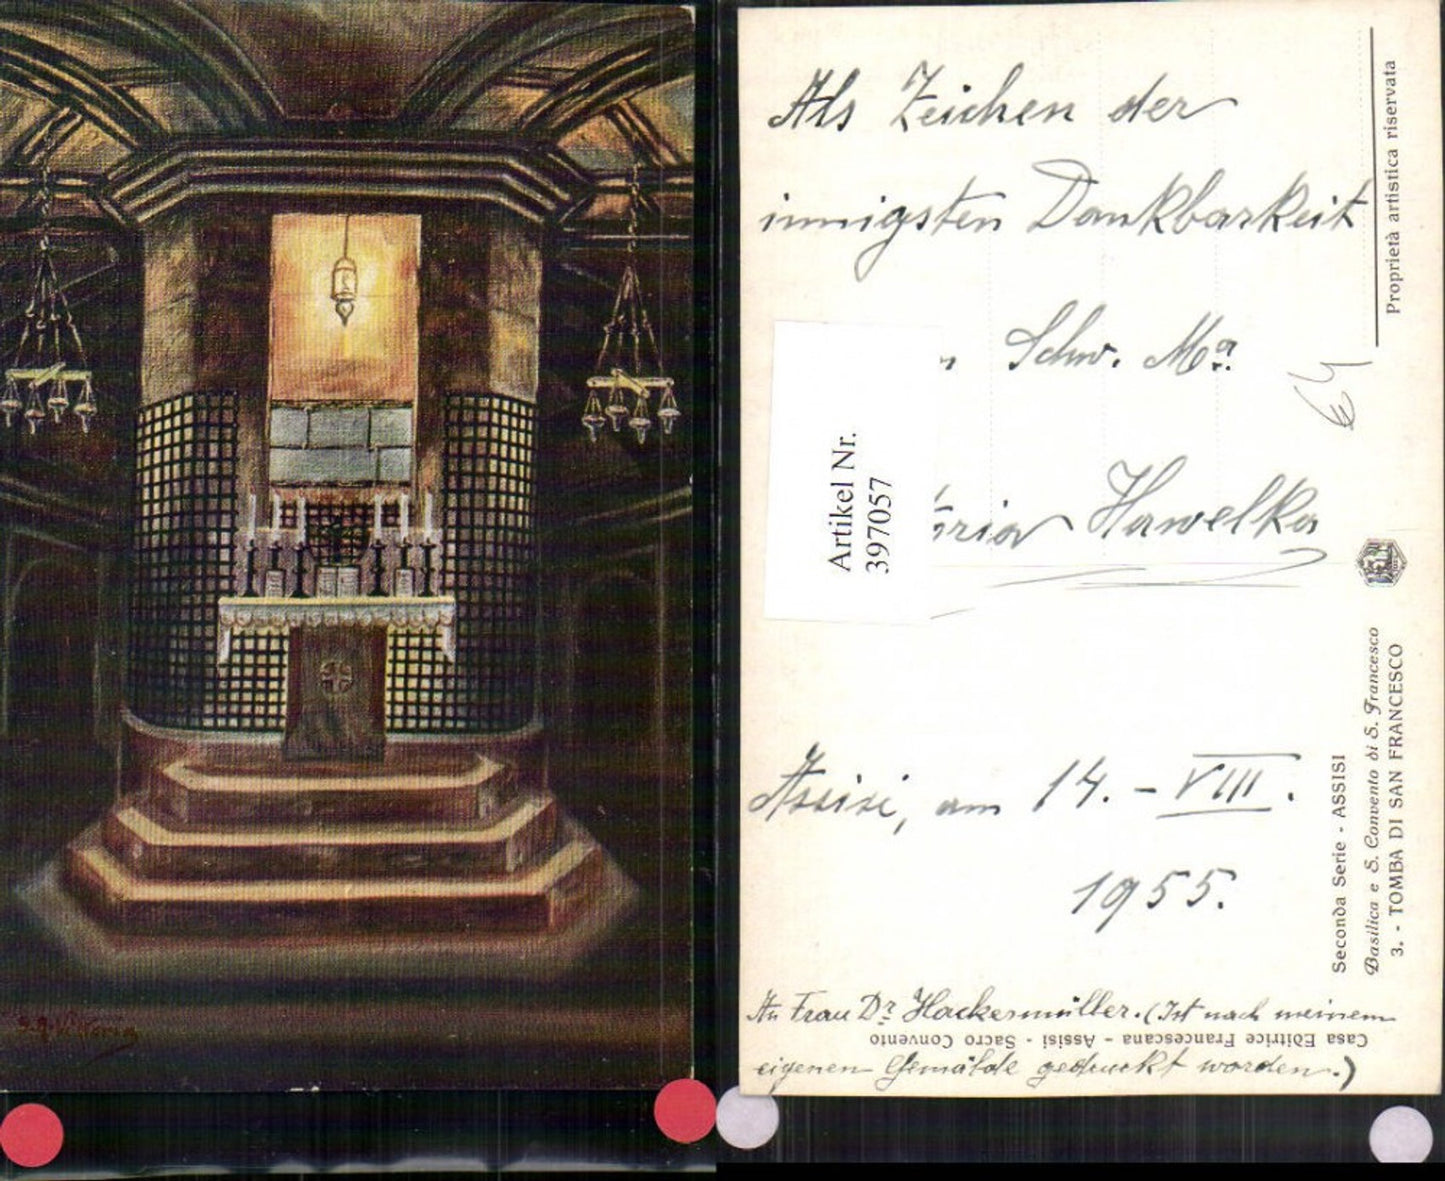 Als Zeichen der
innigsten Dankbarkeit
Schw. Ma.
Hawelka
Assisi, am 14. - VIII.
1955.
An Frau Dr. Hackermüller. (Ist nach meinem
eigenen Gemälde gedruckt worden.)
Artikel Nr.
397057
Proprietà artistica riservata
Seconda Serie - ASSISI
Basilica e S. Convento di S. Francesco
3. - TOMBA DI SAN FRANCESCO
Casa Editrice Francescana - Assisi - Sacro Convento